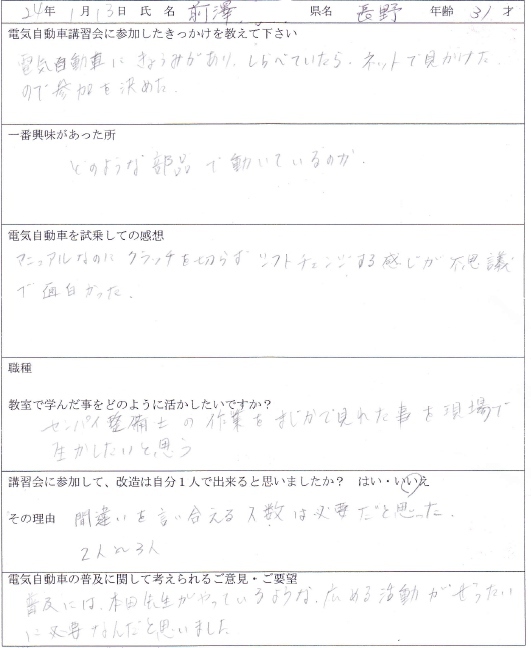 24年 1月 13日 氏 名 前澤 県名 長野 年齢 31才
電気自動車講習会に参加したきっかけを教えて下さい
電気自動車にきょうみがあり、しらべていたら、ネットで見かけた
ので参加を決めた。
一番興味があった所
どのような部品で動いているのか。
電気自動車を試乗しての感想
マニュアルなのにクラッチを切らずシフトチェンジする感じが不思議
で面白かった。
職種
教室で学んだ事をどのように活かしたいですか？
センパイ整備士の作業をまじかで見れた事を現場で
生かしたいと思う
講習会に参加して、改造は自分１人で出来ると思いましたか？ はい・いいえ
その理由 間違いを言い合える人数は必要だと思った。
2人〜3人
電気自動車の普及に関して考えられるご意見・ご要望
普及には、本田先生がやっているような、広める活動がぜったい
に必要なんだと思いました